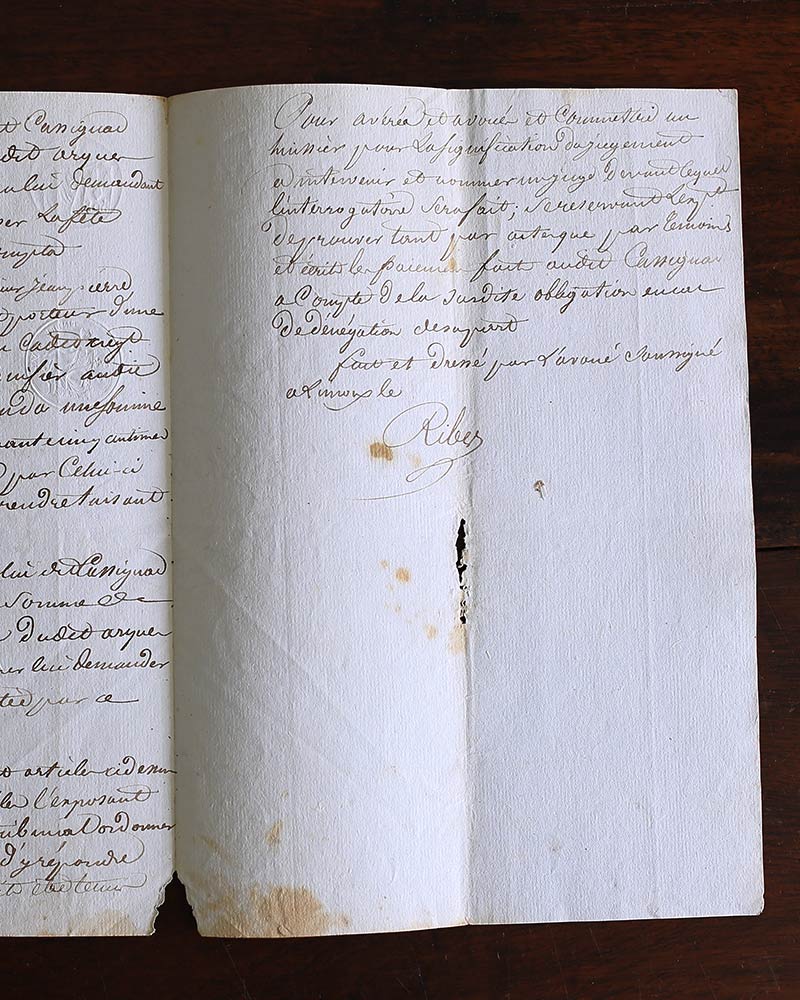 t Cassignac
dit arquer
lui demandant
per la fête
compta
Jean pierre
porteur d'une

audit
une somme
ante cinq centimes
par Celui-ci
prendre faisant
lui dit Cassignac
Somme de
Dudit arquer
lui demander
par ce
article cidessus
l'exposant
tribunal ordonner
d'y répondre
être tenus
Pour avéré et avoué et Commettre un
huissier pour la signification du jugement
a intervenir et nommer un juge devant lequel
l'interrogatoire sera fait; se reservant l'expt
de prouver tant par acte que par temoins
et écrits le paiement fait audit Cassignac
a Compte de la susdite obligation en cas
De dénégation de sa part
fait et Dressé par L'avoué soussigné
a Limoux le
Ribes